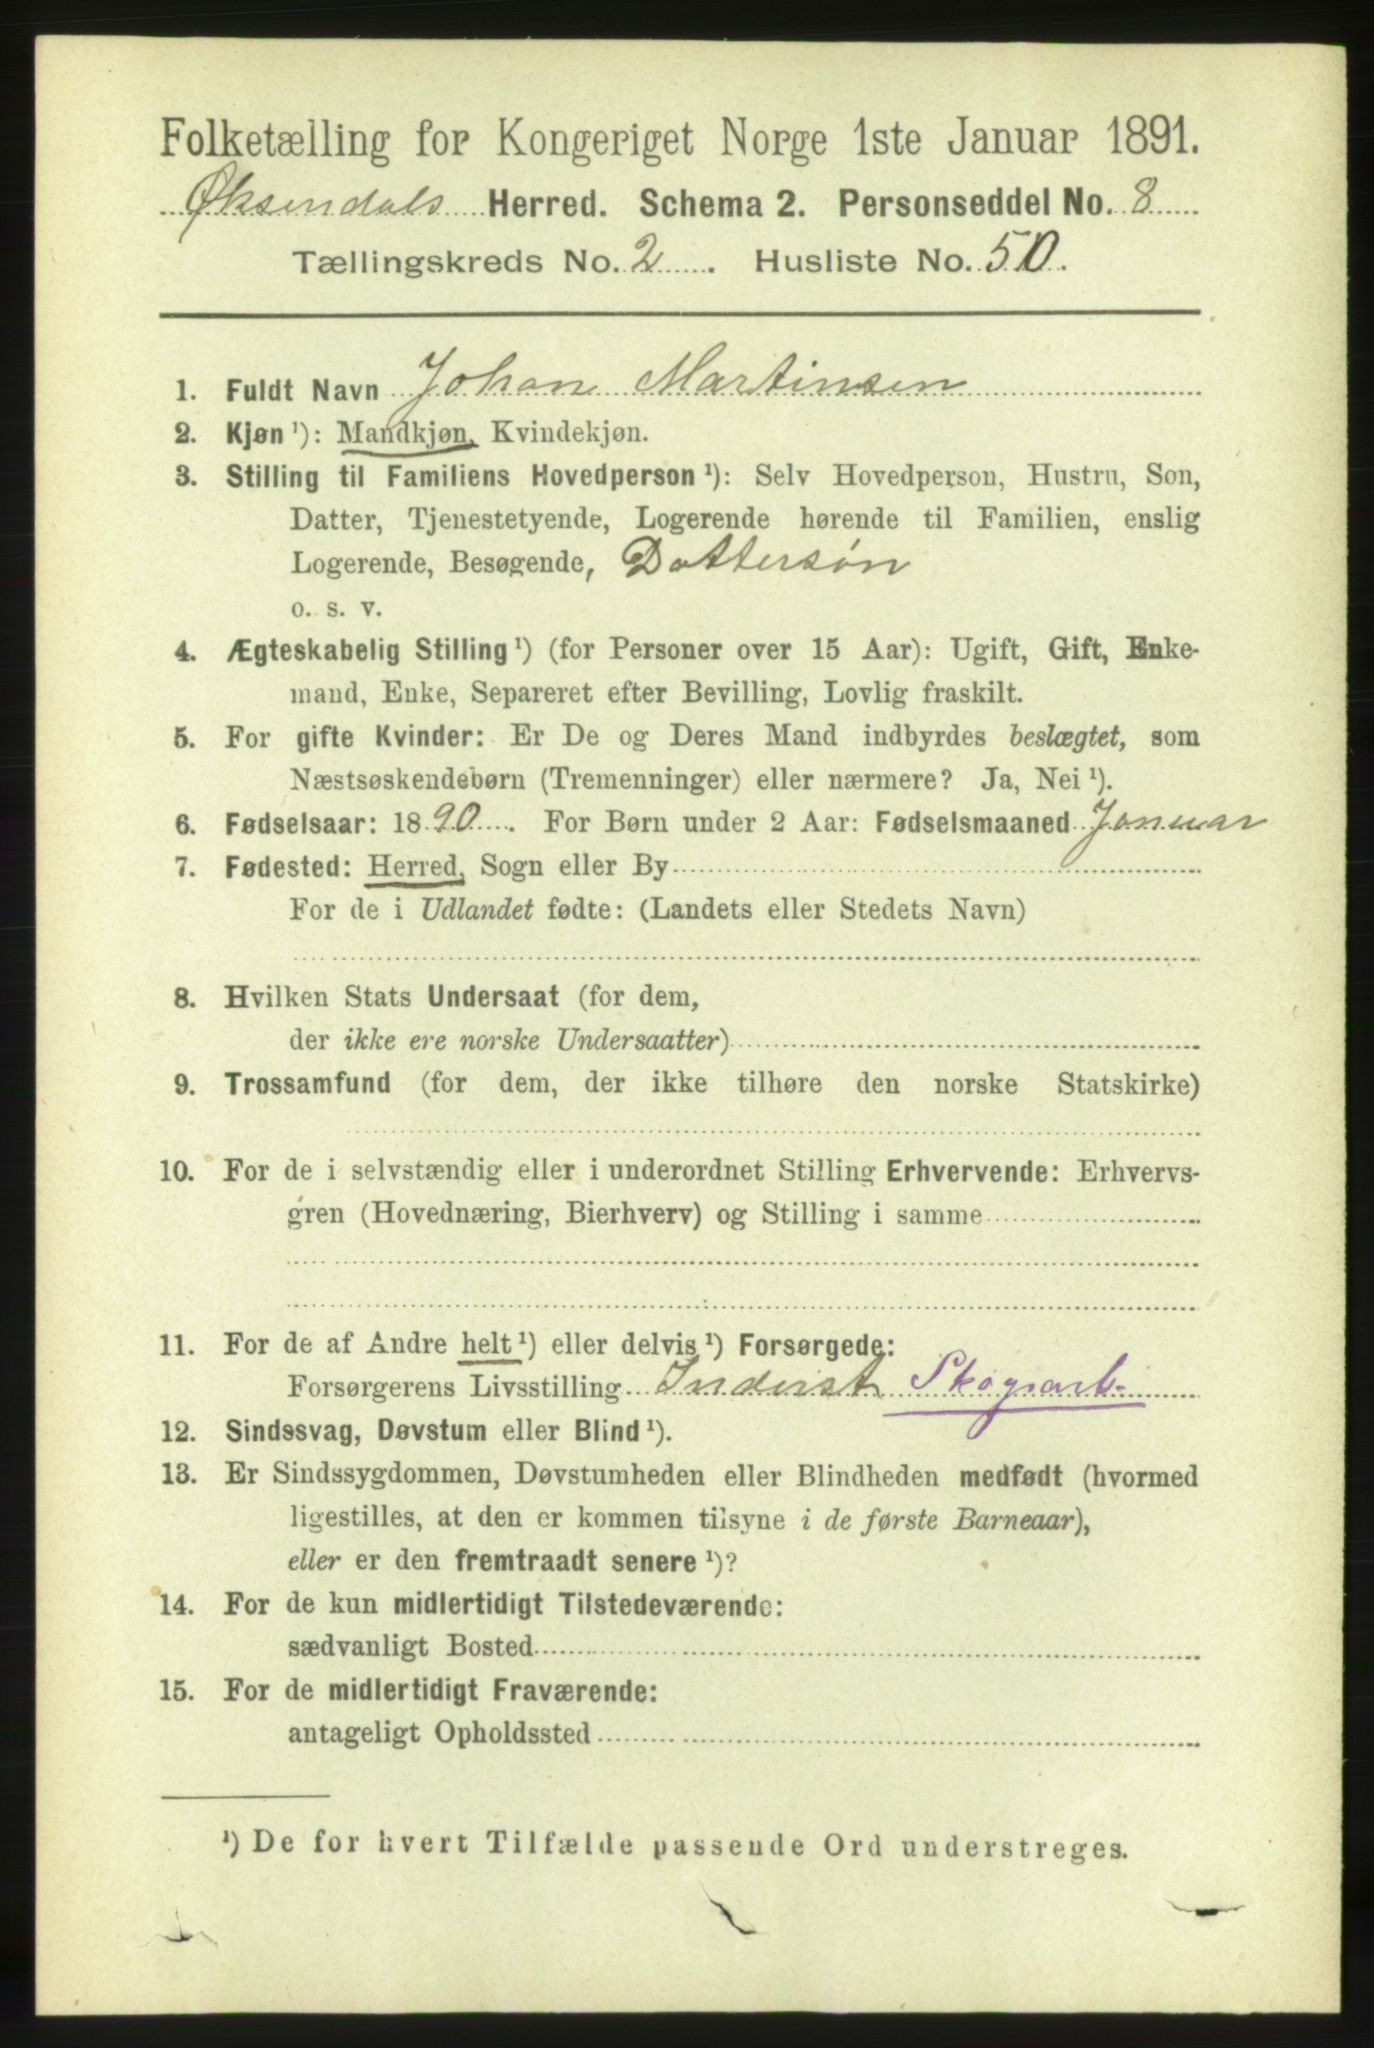 Folketælling for Kongeriget Norge 1ste Januar 1891.
Øksendals Herred. Schema 2. Personseddel No. 8
Tællingskreds No. 2. Husliste No. 50.
1. Fuldt Navn Johan Martinsen
2. Kjøn¹): Mandkjøn, Kvindekjøn.
3. Stilling til Familiens Hovedperson¹): Selv Hovedperson, Hustru, Søn,
Datter, Tjenestetyende, Logerende hørende til Familien, enslig
Logerende, Besøgende, Dattersøn
o. s. v.
4. Ægteskabelig Stilling¹) (for Personer over 15 Aar): Ugift, Gift, Enke-
mand, Enke, Separeret efter Bevilling, Lovlig fraskilt.
5. For gifte Kvinder: Er De og Deres Mand indbyrdes beslægtet, som
Næstsøskendebørn (Tremenninger) eller nærmere? Ja, Nei¹).
6. Fødselsaar: 1890. For Børn under 2 Aar: Fødselsmaaned Januar
7. Fødested: Herred, Sogn eller By
For de i Udlandet fødte: (Landets eller Stedets Navn)
8. Hvilken Stats Undersaat (for dem,
der ikke ere norske Undersaatter)
9. Trossamfund (for dem, der ikke tilhøre den norske Statskirke)
10. For de i selvstændig eller i underordnet Stilling Erhvervende: Erhvervs-
gren (Hovednæring, Bierhverv) og Stilling i samme
11. For de af Andre helt¹) eller delvis¹) Forsørgede:
Forsørgerens Livsstilling Inderst Skogsarb.
12. Sindssvag, Døvstum eller Blind¹).
13. Er Sindssygdommen, Døvstumheden eller Blindheden medfødt (hvormed
ligestilles, at den er kommen tilsyne i de første Barneaar),
eller er den fremtraadt senere¹)?
14. For de kun midlertidigt Tilstedeværende:
sædvanligt Bosted
15. For de midlertidigt Fraværende:
antageligt Opholdssted
¹) De for hvert Tilfælde passende Ord understreges.